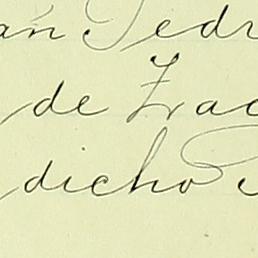 an Pedr
de Zac
dicho